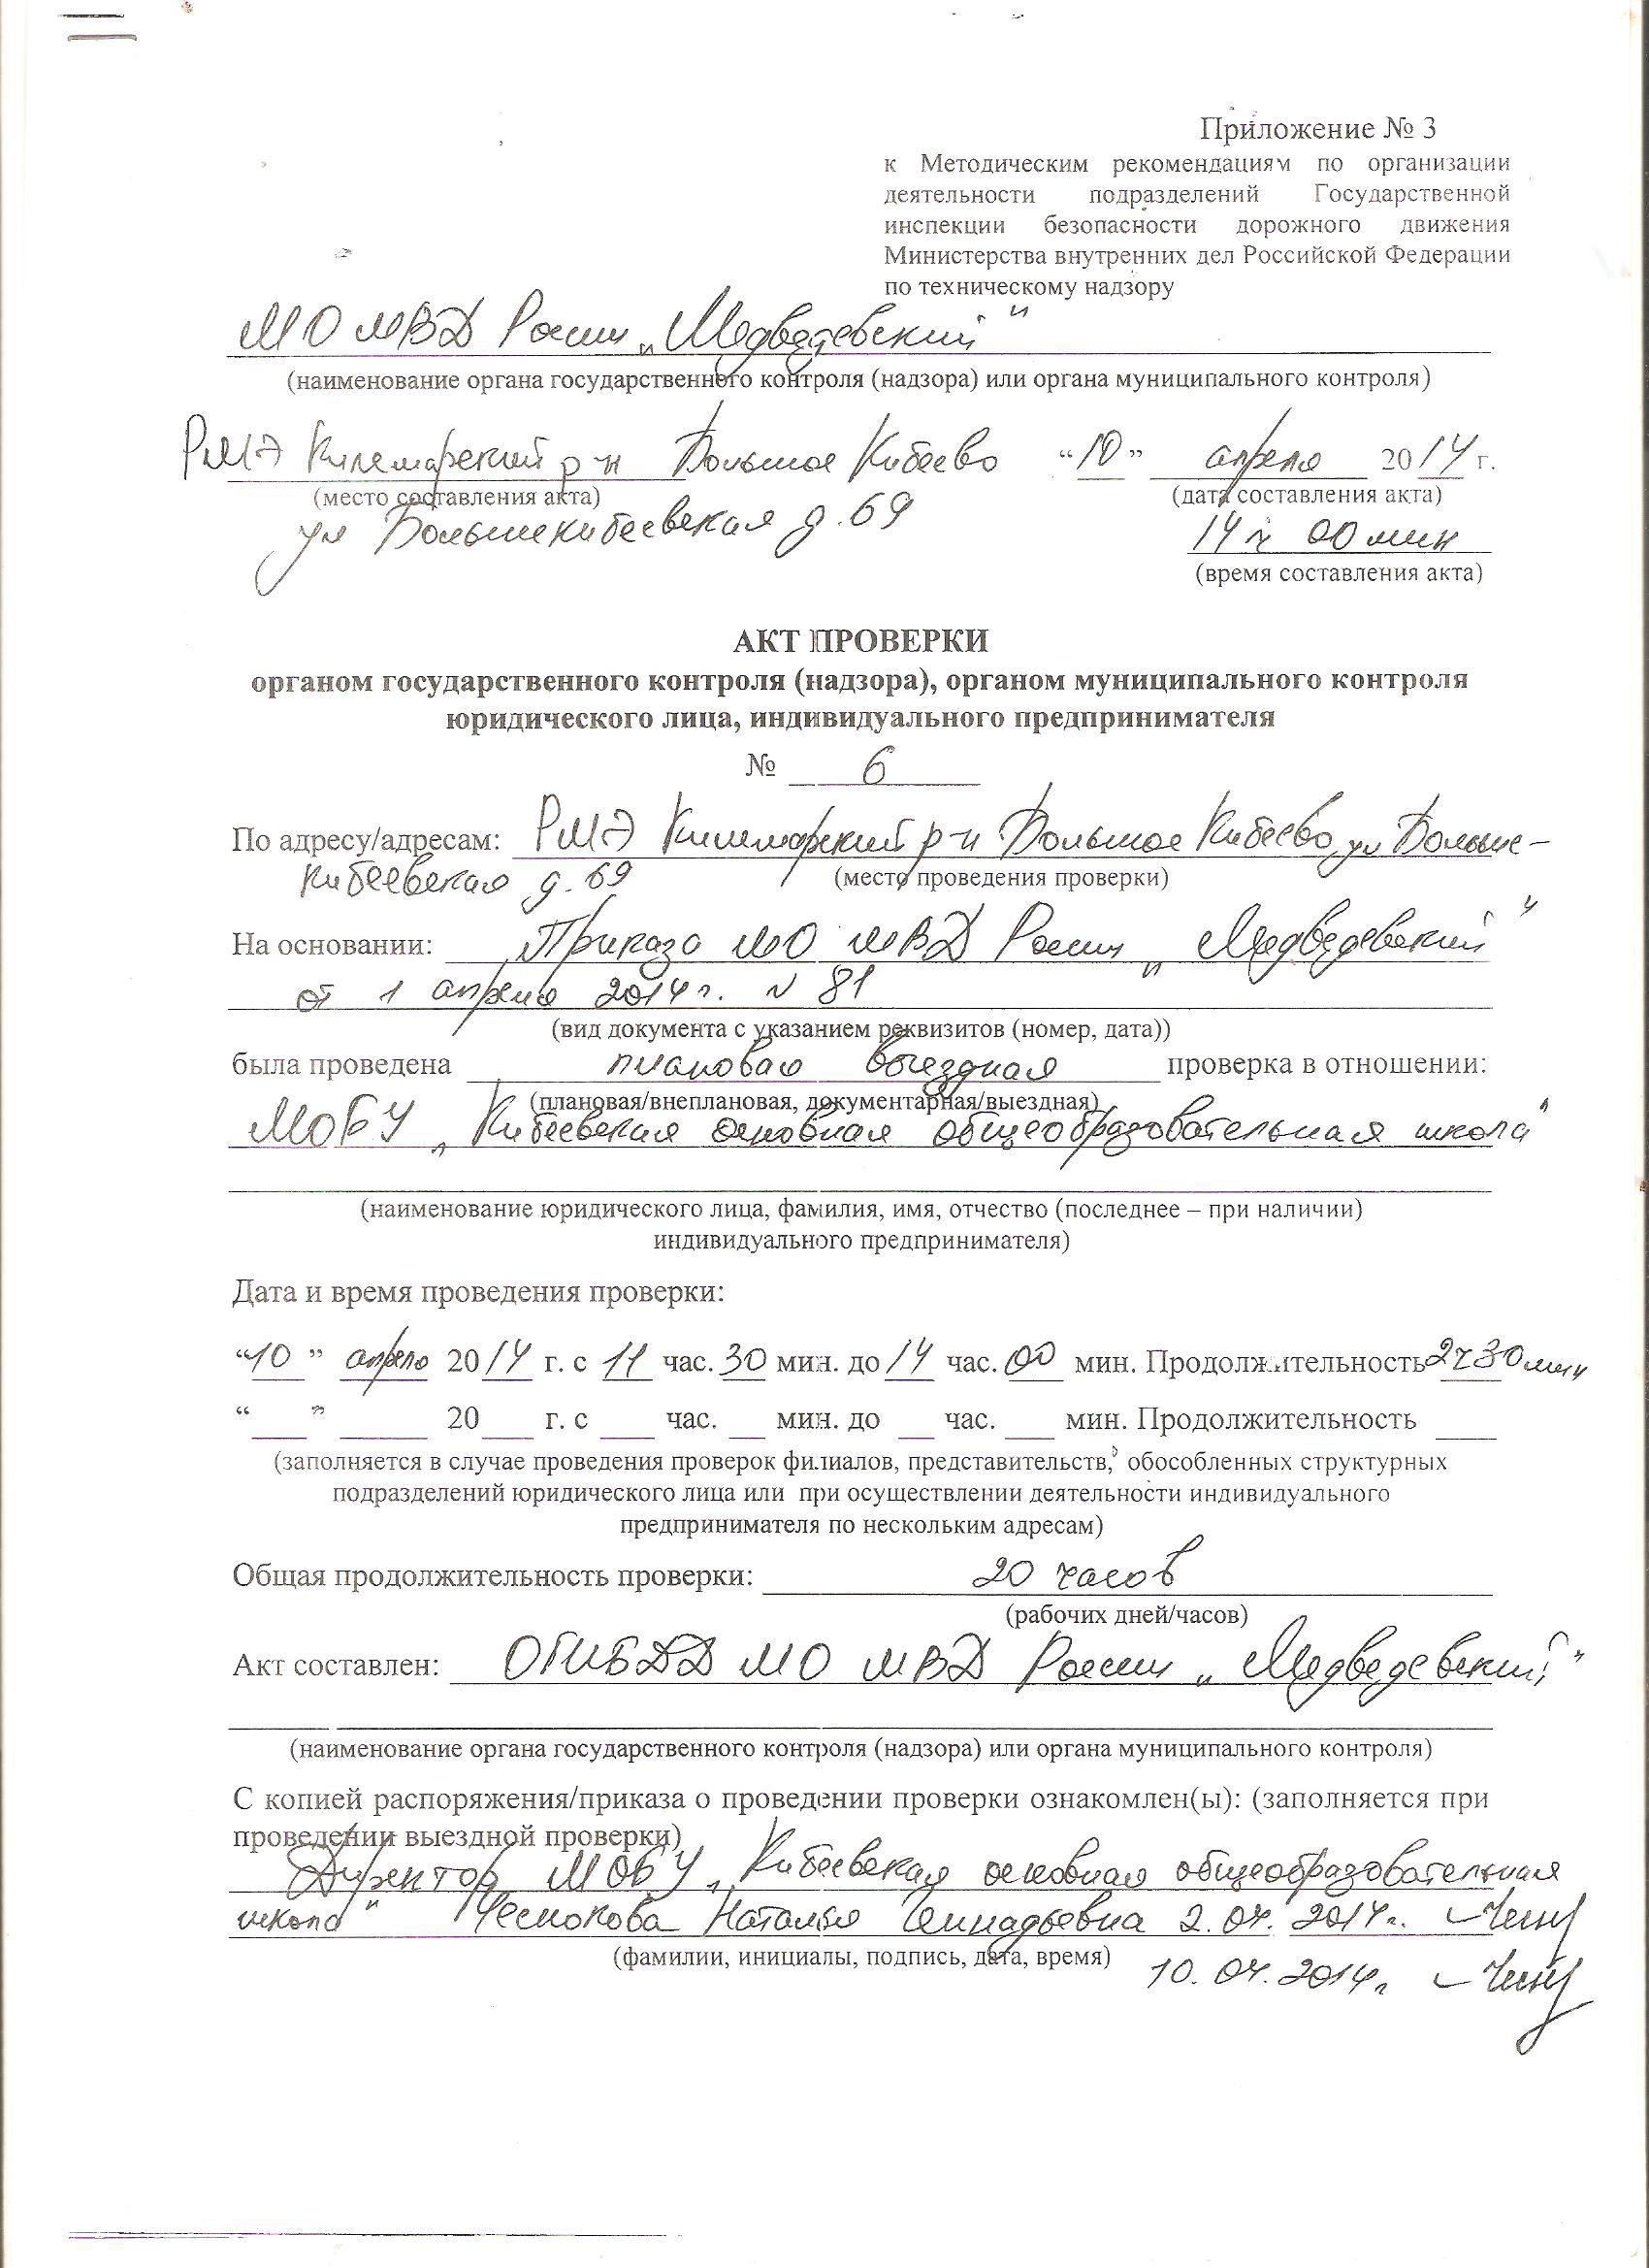 Приложение № 3
к Методическим рекомендациям по организации
деятельности подразделений Государственной
инспекции безопасности дорожного движения
Министерства внутренних дел Российской Федерации
по техническому надзору
МО МВД России „Медведевский"
(наименование органа государственного контроля (надзора) или органа муниципального контроля)
РМЭ Килемарский р-н Большое Кибеево “10” апреля 2014 г.
(место составления акта) (дата составления акта)
ул Большекибеевская д. 69 14 ч 00 мин
(время составления акта)
АКТ ПРОВЕРКИ
органом государственного контроля (надзора), органом муниципального контроля
юридического лица, индивидуального предпринимателя
№ 6
По адресу/адресам: РМЭ Килемарский р-н Большое Кибеево ул Больше-
кибеевская д. 69 (место проведения проверки)
На основании: Приказа МО МВД России „Медведевский"
от 1 апреля 2014 г. N 81
(вид документа с указанием реквизитов (номер, дата))
была проведена плановая выездная проверка в отношении:
(плановая/внеплановая, документарная/выездная)
МОБУ „Кибеевская основная общеобразовательная школа"
(наименование юридического лица, фамилия, имя, отчество (последнее – при наличии)
индивидуального предпринимателя)
Дата и время проведения проверки:
“10” апреля 2014 г. с 11 час. 30 мин. до 14 час. 00 мин. Продолжительность 2ч30мин
“ ” 20 г. с час. мин. до час. мин. Продолжительность
(заполняется в случае проведения проверок филиалов, представительств, обособленных структурных
подразделений юридического лица или при осуществлении деятельности индивидуального
предпринимателя по нескольким адресам)
Общая продолжительность проверки: 20 часов
(рабочих дней/часов)
Акт составлен: ОГИБДД МО МВД России „Медведевский"
(наименование органа государственного контроля (надзора) или органа муниципального контроля)
С копией распоряжения/приказа о проведении проверки ознакомлен(ы): (заполняется при
проведении выездной проверки)
Директор МОБУ „Кибеевская основная общеобразовательная
школа" Чеснокова Наталья Геннадьевна 2.04.2014г.
(фамилии, инициалы, подпись, дата, время) 10.04.2014г